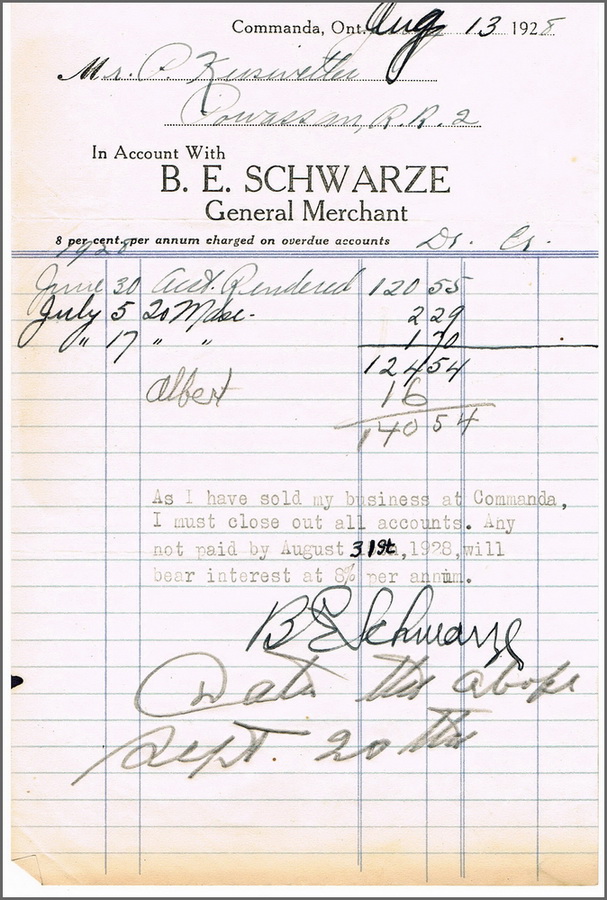 Commanda, Ont. Aug 13 1928
Mr. P Kusiwetter
Powassan, R.R. 2
In Account With
B. E. SCHWARZE
General Merchant
8 per cent. per annum charged on overdue accounts Dr. Cr.
1928
June 30 Acct. Rendered 120 55
July 5 20 Mdse. 2 29
" 17 " " 1 70
124 54
Albert 16
140 54
As I have sold my business at Commanda,
I must close out all accounts. Any
not paid by August 31st,1928,will
bear interest at 8% per annum.
B E Schwarze
Date the above
Sept. 20 th